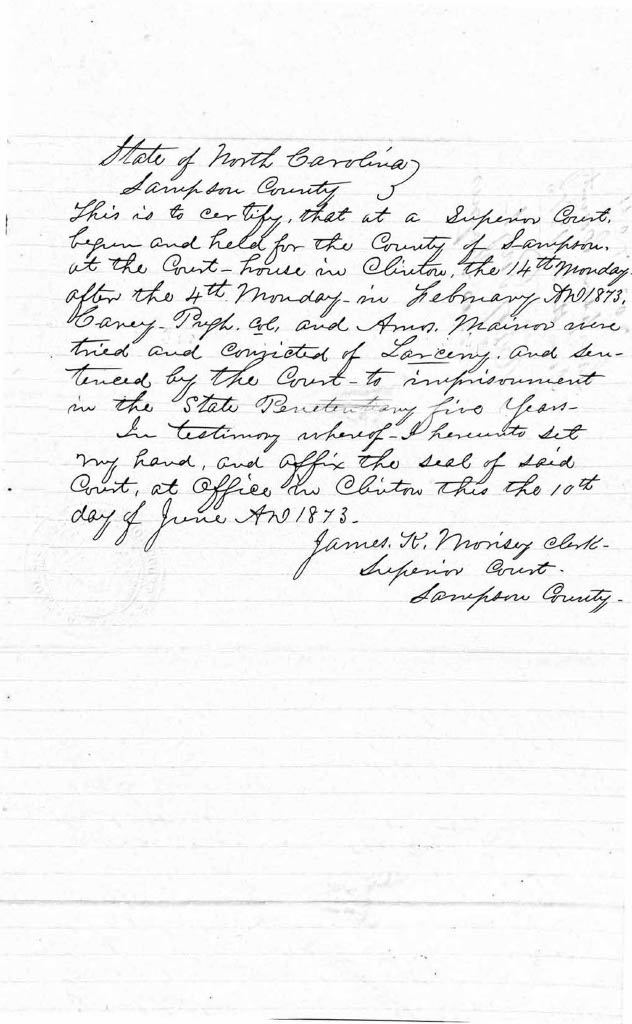 State of North Carolina }
Sampson County }
This is to certify, that at a Superior Court,
begun and held for the County of Sampson,
at the Court-house in Clinton, the 14th Monday
after the 4th Monday in February AD 1873,
Caney Pugh, col, and Amos. Mainor were
tried and convicted of Larceny, and sen-
tenced by the Court to imprisonment
in the State Penetentiary five Years-
In testimony whereof I hereunto set
my hand, and affix the seal of said
Court, at Office in Clinton this the 10th
day of June AD 1873.
James. K. Morisey Clerk-
Superior Court-
Sampson County-